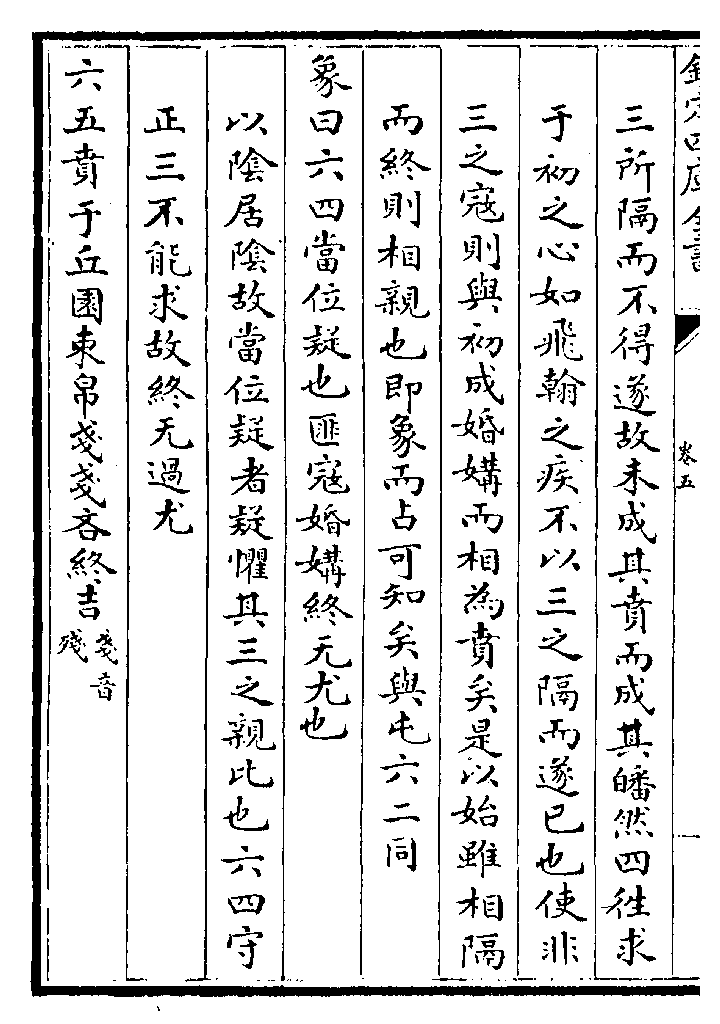 欽定四庫全書
卷五
三所隔而不得遂故未成其賁而成其皤然四往求
于初之心如飛翰之疾不以三之隔而遂已也使非
三之寇則與初成婚媾而相為賁矣是以始雖相隔
而終則相親也即象而占可知矣與屯六二同
象曰六四當位疑也匪寇婚媾終无尤也
以陰居陰故當位疑者疑懼其三之親比也六四守
正三不能求故終无過尤
六五賁于丘園束帛戔戔吝終吉戔音
殘